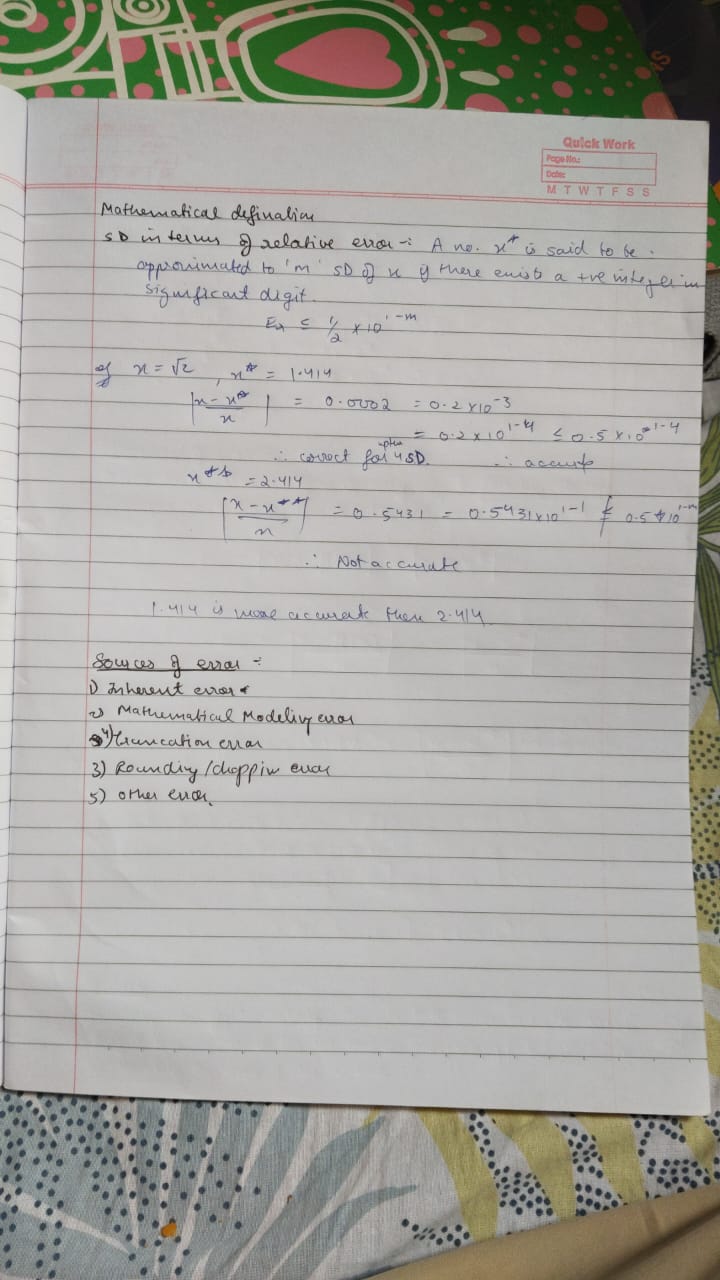 Quick Work
Page No.:
Date:
M T W T F S S
Mathematical defination
SD in terms of relative error -: A no. x* is said to be
approximated to 'm' SD of x if there exists a +ve integer m
significant digit.
Ex ≤ 1/2 × 10^1-m
eg x = √2 , x* = 1.414
|x - x*/x| = 0.0002 = 0.2 × 10^-3
= 0.2 × 10^1-4 ≤ 0.5 × 10^1-4
∴ correct for 4 SD. ∴ accurate
x** = 2.414
|x - x**/x| = 0.5431 = 0.5431 × 10^1-1 ≰ 0.5 × 10^1-m
∴ Not accurate
1.414 is more accurate then 2.414
Sources of error :-
1) Inherent error
2) Mathematical Modeling error
4) truncation error
3) Rounding /choppin error
5) other error.